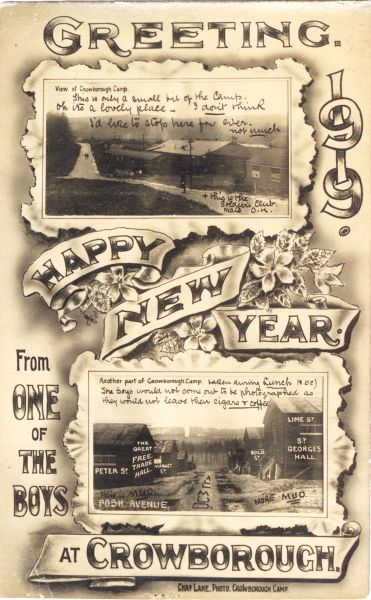 GREETING.
1919.
View of Crowborough Camp.
This is only a small bit of the Camp.
oh its a lovely place – I don't think
I'd like to stop here for ever.
not much
+ this is the
Soldiers Club.
O.K.
HAPPY
NEW
YEAR.
From
ONE
OF
THE
BOYS
Another part of Crowborough Camp. taken during Lunch
The Boys would not come out to be photographed as
they would not leave their cigars & coffee
PETER ST.
THE
GREAT
FREE
TRADE
HALL.
MARKET
ST.
BOLD
ST.
LIME ST.
ST
GEORGES
HALL.
This is MUD.
POSH AVENUE.
MUD
MORE MUD.
AT CROWBOROUGH.
CHAS LANE. PHOTO. CROWBOROUGH CAMP.